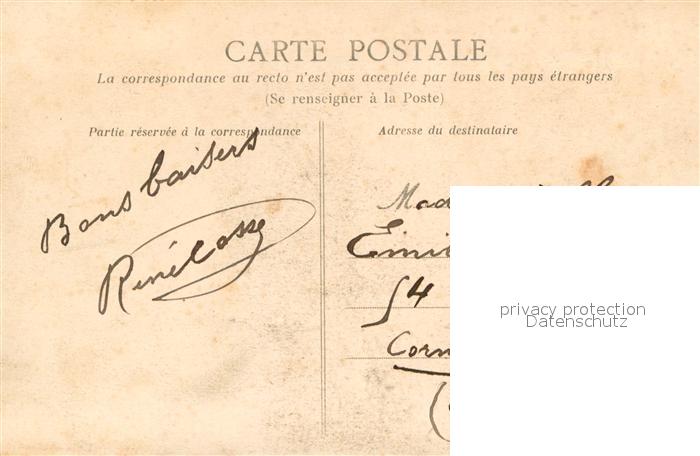 CARTE POSTALE
La correspondance au recto n'est pas acceptée par tous les pays étrangers
(Se renseigner à la Poste)
Partie réservée à la correspondance
Adresse du destinataire
Bons baisers
René
54
privacy protection
Datenschutz